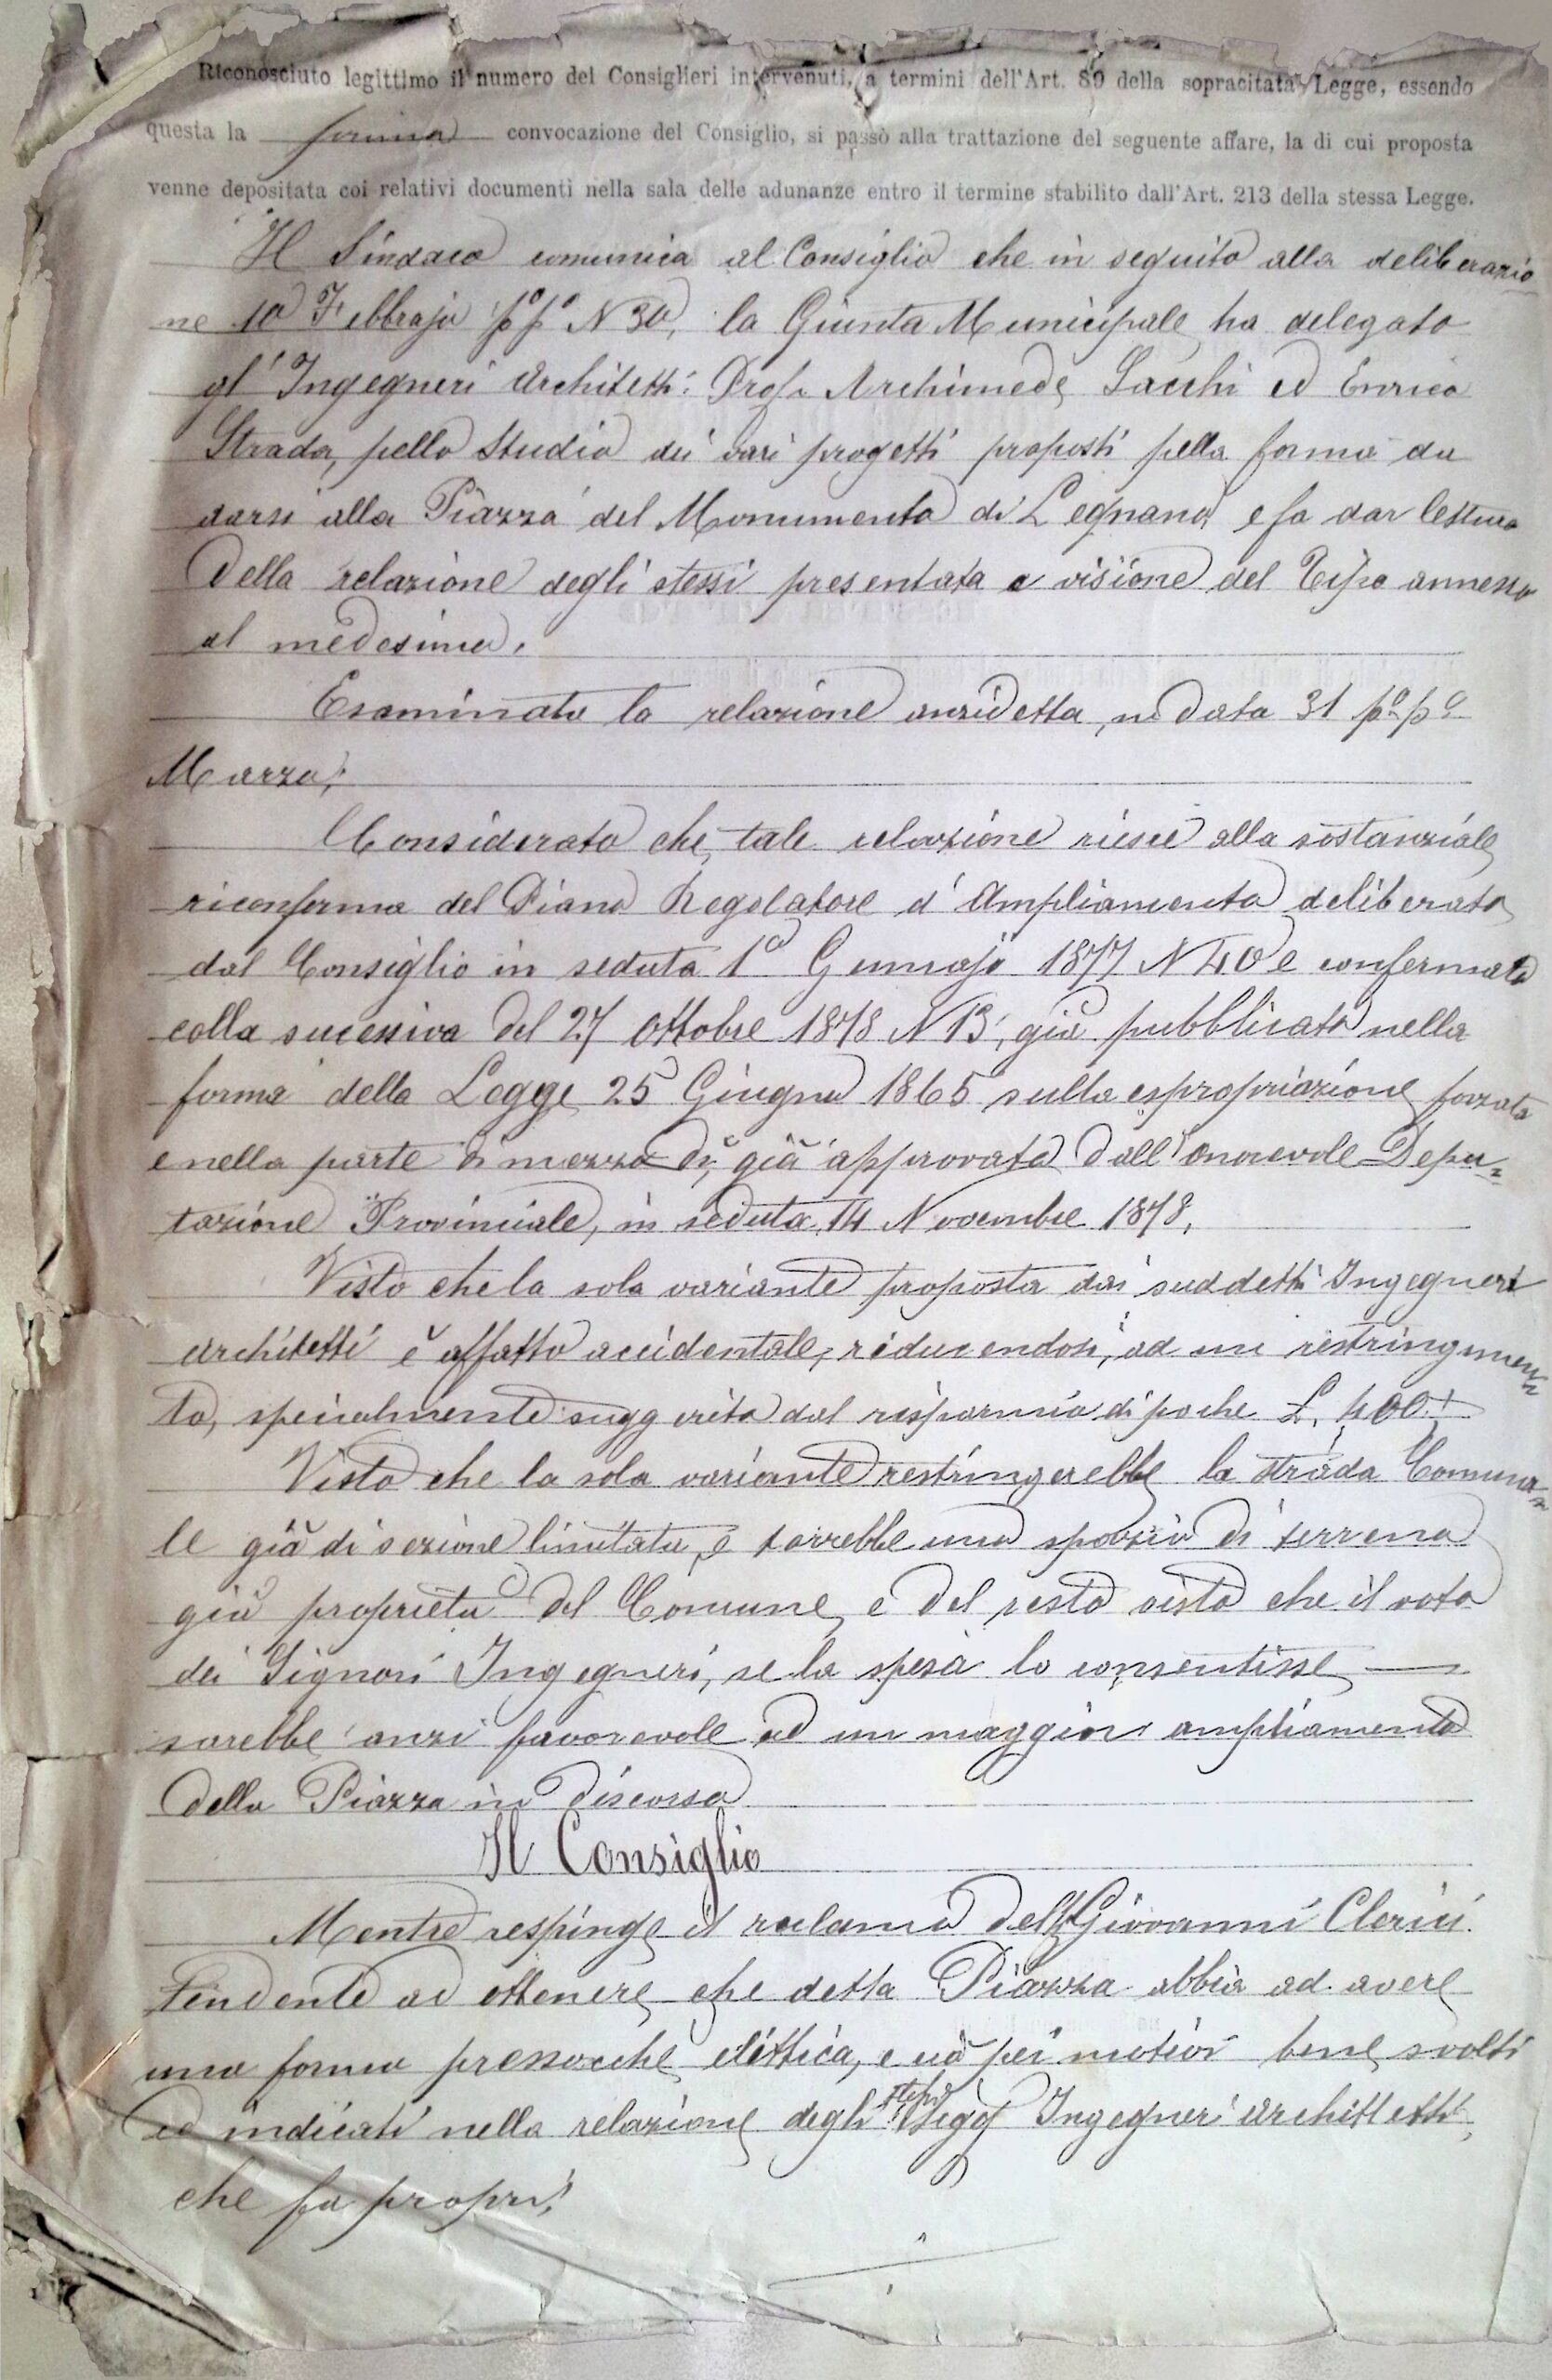 Riconosciuto legittimo il numero dei Consiglieri intervenuti, a termini dell'Art. 89 della sopracitata Legge, essendo
questa la prima convocazione del Consiglio, si passò alla trattazione del seguente affare, la di cui proposta
venne depositata coi relativi documenti nella sala delle adunanze entro il termine stabilito dall'Art. 213 della stessa Legge.
Il Sindaco comunica al Consiglio che in seguito alla deliberazio
ne 10 Febbrajo p.º p.º N 30, la Giunta Municipale ha delegato
gl' Ingegneri Architetti: Prof. Archimede Sacchi ed Enrico
Strada, pello Studio dei vari progetti proposti pella forma da
darsi alla Piazza del Monumento di Legnano, e fa dar lettura
della relazione degli stessi presentata a visione del Tipo annesso
al medesimo.
Esaminata la relazione anzidetta, in data 31 p.º p.º
Marzo;
Considerato che, tale relazione riesce alla sostanziale
riconferma del Piano Regolatore d'Ampliamento deliberato
dal Consiglio in seduta 1º Gennajo 1877 N 40 e confermato
colla sucessiva del 27 Ottobre 1878 N 13, già pubblicato nella
forma della Legge 25 Giugno 1865 sulla espropriazione forzata
e nella parte di mezzo di già approvata dall'onorevole Depu=
tazione Provinciale, in seduta 14 Novembre 1878.
Visto che la sola variante proposta dai suddetti Ingegneri
Architetti è affatto accidentale, riducendosi, ad un restringimen=
to, specialmente suggerito dal risparmio di poche L. 400.
Visto che la sola variante restringerebbe la strada Comuna=
le già di sezione limitata, e torrebbe uno spazio di terreno
già proprietà del Comune, e del resto visto che il voto
dei Signori Ingegneri, se la spesa lo consentisse
sarebbe anzi favorevole ad un maggior ampliamento
della Piazza in discorso
Il Consiglio
Mentre respinge il reclamo del Giovanni Clerici
tendente ad ottenere che detta Piazza abbia ad avere
una forma pressocchè elittica, e ciò pei motivi bene svolti
ed indicati nella relazione degli stessi Sigg Ingegneri Architetti,
che fa propri;